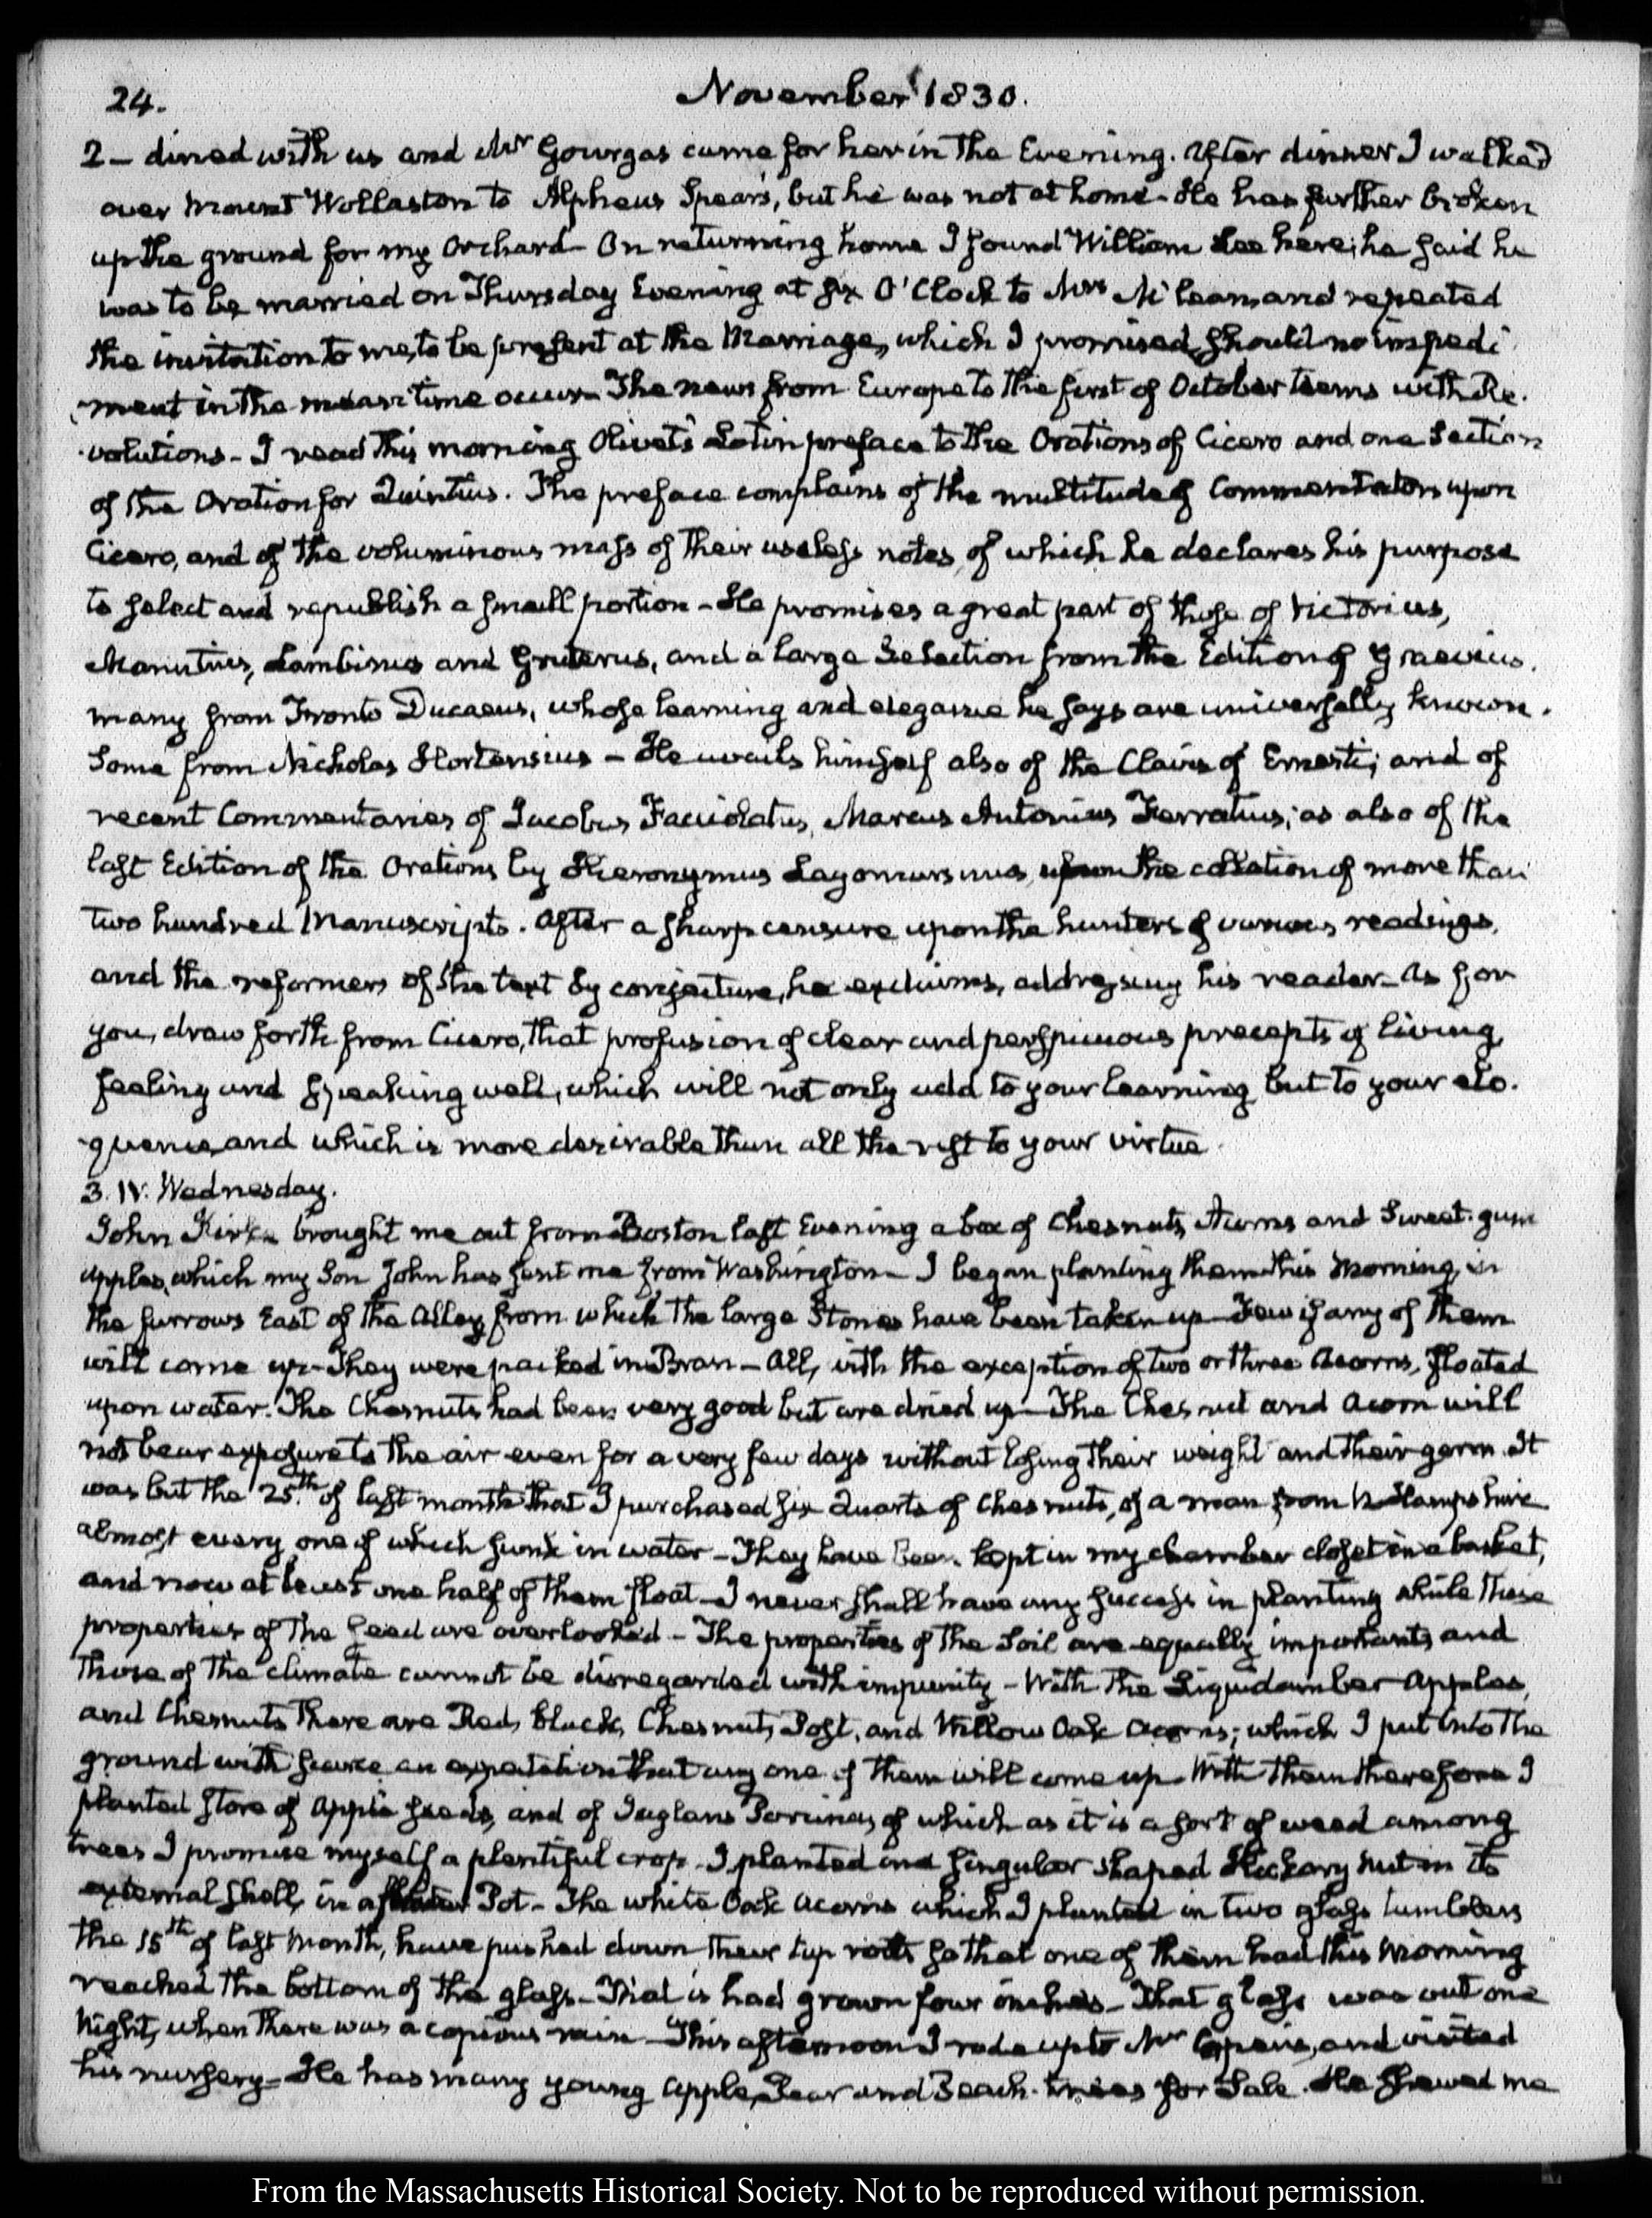 24.
November 1830.
2 — dined with us and Mr Gourgas came for her in the Evening. After dinner I walked
over Mount Wollaston to Alpheus Spear's, but he was not at home - He has further broken
up the ground for my Orchard - On returning home I found William Lee here; he said he
was to be married on Thursday Evening at six O'Clock to Mrs McLean, and repeated
the invitation to me, to be present at the Marriage, which I promised, should no impedi
ment in the mean time occur - The news from Europe to the first of October teems with Re-
volutions - I read this morning Olivet's Latin preface to the Orations of Cicero and one Section
of the Oration for Quintius. The preface complains of the multitude of Commentators upon
Cicero, and of the voluminous mass of their useless notes, of which he declares his purpose
to select and republish a small portion - He promises a great part of those of Victorius,
Manutius, Lambinus and Gruterus, and a large Selection from the Edition of Graevius.
many from Fronto Ducaeus, whose learning and elegance he says are universally known.
Some from Nicholas Hortensius - He avails himself also of the Clavis of Ernesti; and of
recent Commentaries of Jacobus Facciolatus, Marcus Antonius Ferratius; as also of the
last Edition of the Orations by Hieronymus Lagomarsinus, upon the collation of more than
two hundred Manuscripts. After a sharp censure upon the hunters of various readings,
and the reformers of the text by conjecture, he exclaims, addressing his reader - As for
you, draw forth from Cicero, that profusion of clear and perspicuous precepts of living,
feeling and speaking well, which will not only add to your learning but to your elo-
quence, and which is more desirable than all the rest to your virtue.
3. IV. Wednesday.
John Kirke brought me out from Boston last Evening a box of Chesnuts, Acorns and Sweet-gum
apples, which my Son John has sent me from Washington - I began planting them this Morning, in
the furrows East of the Alley from which the large Stones have been taken up - Few if any of them
will come up - They were packed in Bran - All, with the exception of two or three Acorns, floated
upon water. The Chesnuts had been very good but are dried up - The Chesnut and Acorn will
not bear exposure to the air even for a very few days without losing their weight and their germ. It
was but the 25th of last month that I purchased six Quarts of Chesnuts, of a man from N. Hampshire
almost every one of which sunk in water - They have been kept in my chamber closet in a basket,
and now at least one half of them float - I never shall have any success in planting while these
properties of the Seed are overlooked - The properties of the Soil are equally important, and
those of the climate cannot be disregarded with impunity - With the Liquidamber Apples,
and Chesnuts there are Red, Black, Chesnut, Post, and Willow Oak Acorns; which I put into the
ground with scarce an expectation that any one of them will come up. With them therefore I
planted store of Apple seeds, and of Juglans Porcinas, of which as it is a sort of weed among
trees I promise myself a plentiful crop - I planted one singular shaped Hickory nut in its
external shell, in a flower Pot - The white Oak acorns which I planted in two glass tumblers
the 15th of last Month, have pushed down their tap roots so that one of them had this Morning
reached the bottom of the glass - That is had grown four inches - That glass was out one
Night, when there was a copious rain - This afternoon I rode up to Mr Spear's, and visited
his nursery - He has many young Apple, Pear and Peach-trees for Sale. He shewed me
From the Massachusetts Historical Society. Not to be reproduced without permission.